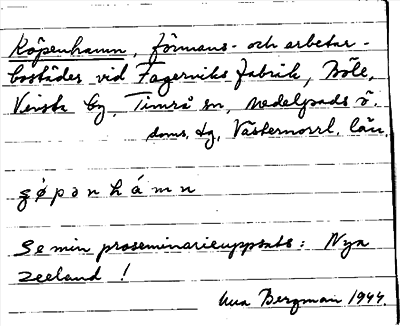 Köpenhamn, förmans- och arbetar-
bostäder vid Fagerviks fabrik, Böle,
Vivsta by, Timrå sn, Medelpads ö.
doms. tg, Västernorrl. län.
şǿpənhámn
Se min proseminarieuppsats: Nya
Zeeland!
Bergman 1944.